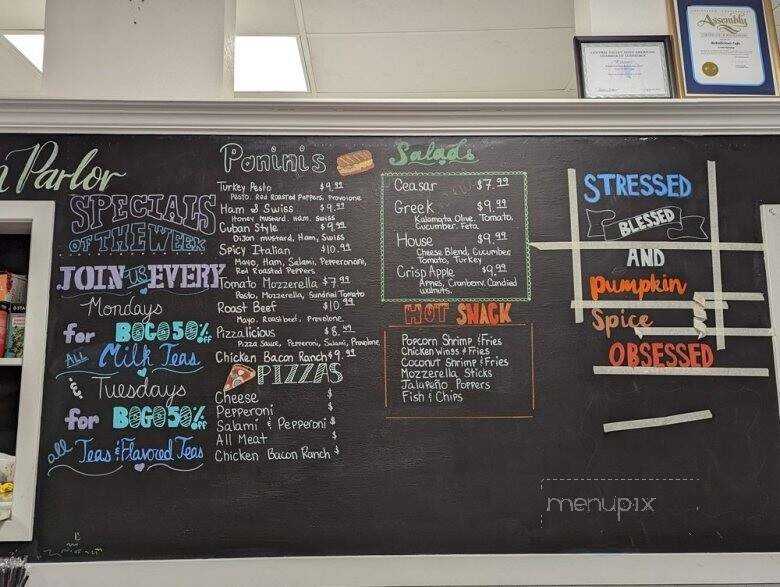 Parlor
SPECIALS
OF THE WEEK
JOIN US EVERY
Mondays
for BOGO 50% off
ALL Milk Teas
& Tuesdays
for BOGO 50% off
all Teas & Flavored Teas
Panini's
Turkey Pesto $9.99
Pesto, Red Roasted Peppers, Provolone
Ham & Swiss $9.99
Honey Mustard, Ham, Swiss
Cuban Style $9.99
Dijon mustard, Ham, Swiss
Spicy Italian $10.99
Mayo, Ham, Salami, Pepperoncini,
Red Roasted Peppers
Tomato Mozzerella $7.99
Pesto, Mozzerella, Sundried Tomato
Roast Beef $10.99
Mayo, Roast beef, Provolone
Pizzalicious $8.49
Pizza Sauce, Pepperoni, Salami, Provolone
Chicken Bacon Ranch $9.99
PIZZAS
Cheese $
Pepperoni $
Salami & Pepperoni $
All Meat $
Chicken Bacon Ranch $
Salads
Ceasar $7.99
Greek $9.99
Kalamata Olive, Tomato,
Cucumber, Feta
House $9.99
Cheese Blend, Cucumber,
Tomato, Turkey
Crisp Apple $9.99
Apples, Cranberry, Candied
walnuts
HOT SNACK
Popcorn Shrimp & Fries
Chicken Wings & Fries
Coconut Shrimp & Fries
Mozzerella Sticks
Jalapeño Poppers
Fish & Chips
STRESSED
BLESSED
AND
pumpkin
Spice
OBSESSED
Assembly
menupix